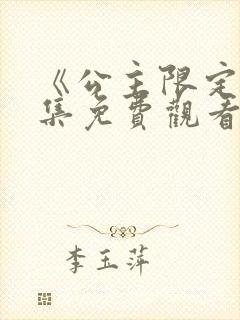 《公主限定
集免費觀看
李玉萍